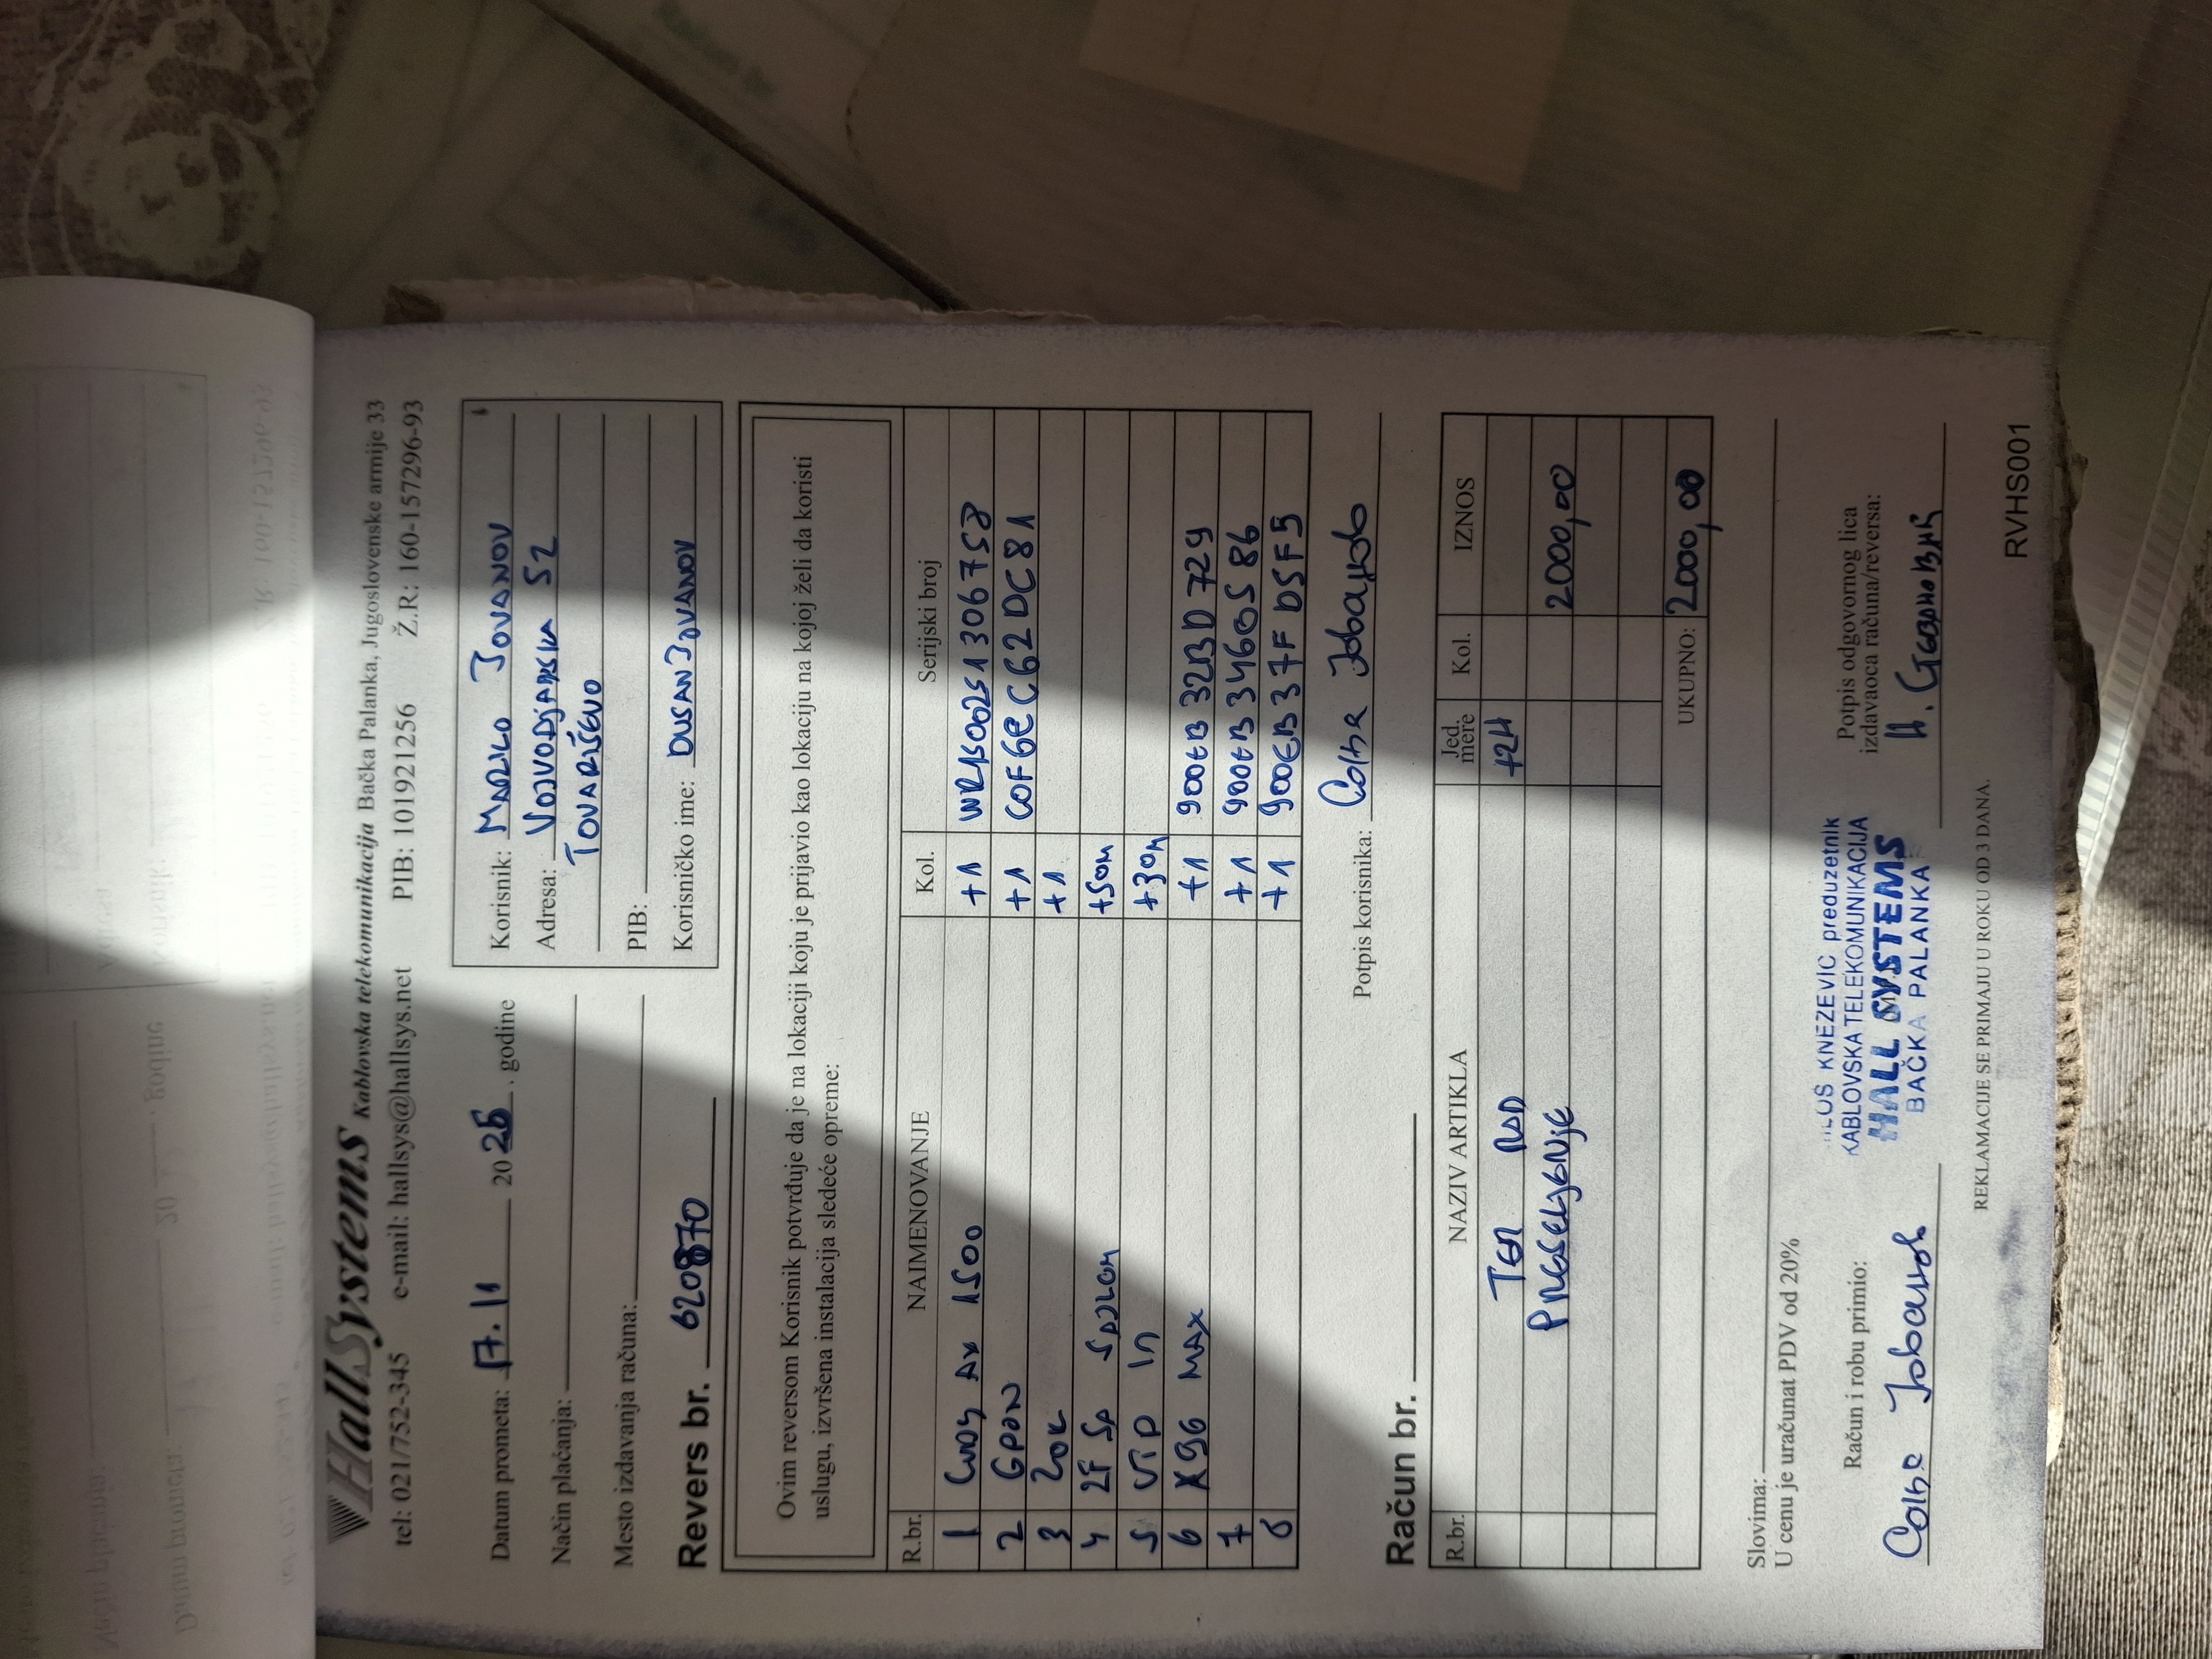 HallSystems Kablovska telekomunikacija Bačka Palanka, Jugoslovenske armije 33
tel: 021/752-345 e-mail: hallsys@hallsys.net PIB: 101921256 Ž.R.: 160-157296-93
Datum prometa: 17.11 2025. godine
Način plaćanja:
Mesto izdavanja računa:
Revers br. 620870
Korisnik: MARKO JOVANOV
Adresa: VOJVODJANSKA 52
TOVARIŠEVO
PIB:
Korisničko ime: DUSANJOVANOV
Ovim reversom Korisnik potvrđuje da je na lokaciji koju je prijavio kao lokaciju na kojoj želi da koristi
uslugu, izvršena instalacija sledeće opreme:
R.br. NAIMENOVANJE Kol. Serijski broj
1 Cudy AX 1500 +1 WR1500251306758
2 GPON +1 COF6EC62DC81
3 ZOK +1
4 2F SP SPOLJM +50m
5 UTP IN +30m
6 X96 MAX +1 900EB32BD729
7 +1 900EB3460586
8 +1 900EB37FD5F5
Potpis korisnika:
Račun br.
R.br. NAZIV ARTIKLA Jed. mere Kol. IZNOS
+24
PRESELJENJE 2000,00
UKUPNO: 2000,00
Slovima:
U cenu je uračunat PDV od 20%
Račun i robu primio:
KNEZEVIC preduzetnik
KABLOVSKA TELEKOMUNIKACIJA
HALL SYSTEMS
BAČKA PALANKA
Potpis odgovornog lica
izdavaoca računa/reversa:
REKLAMACIJE SE PRIMAJU U ROKU OD 3 DANA.
RVHS001